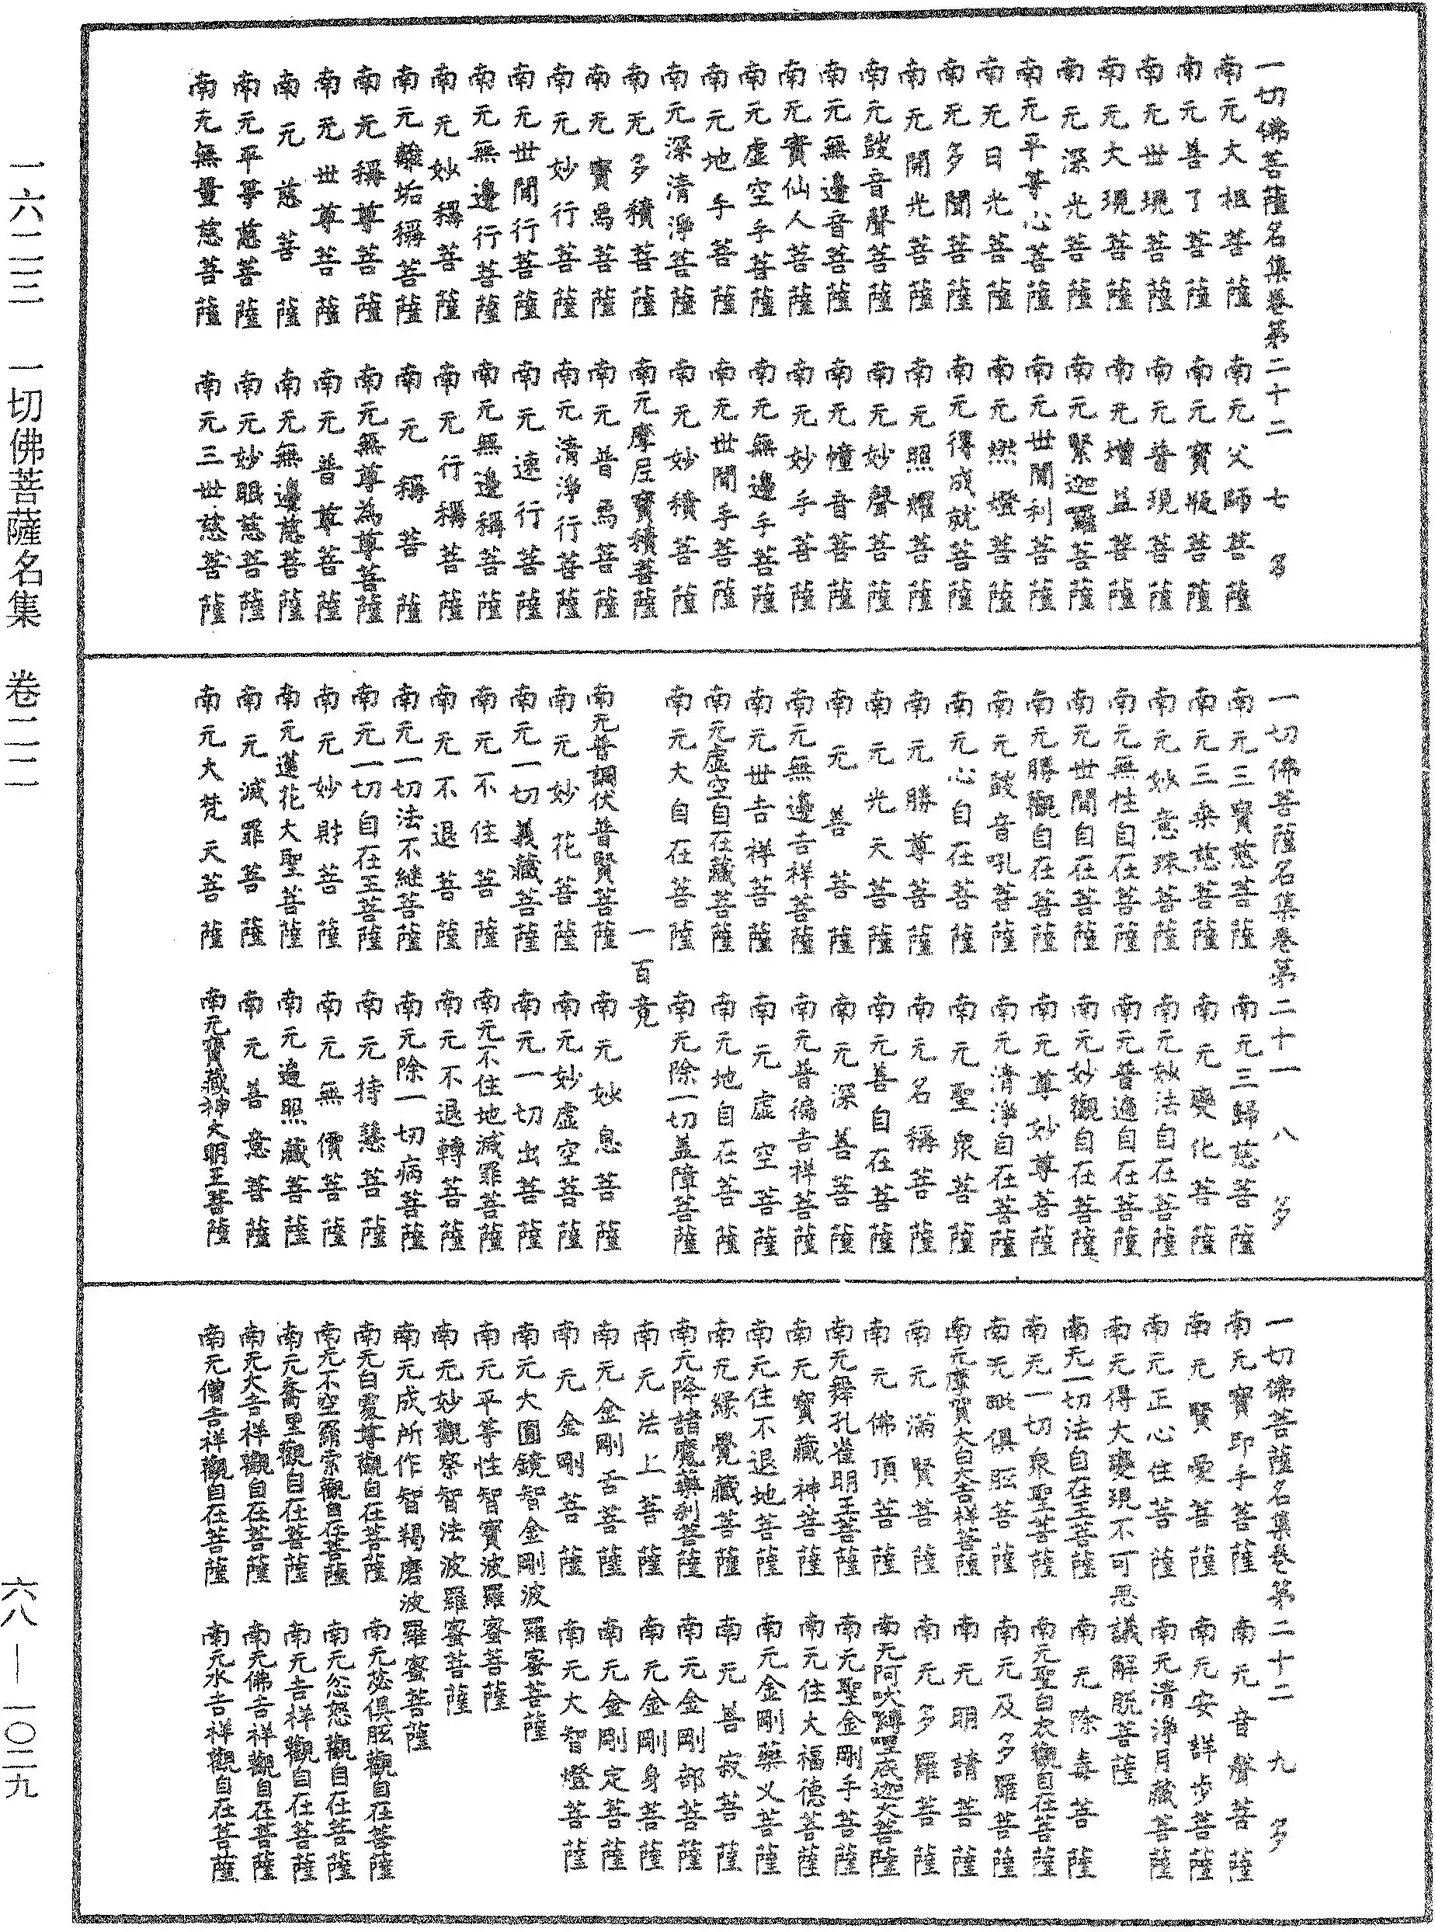 一切佛菩薩名集卷第二十二 七 多
南无大祖菩薩 南无父師菩薩
南无善了菩薩 南无寶瓶菩薩
南无世現菩薩 南无普現菩薩
南无大現菩薩 南无增益菩薩
南无深光菩薩 南无緊迦羅菩薩
南无平等心菩薩 南无世間利菩薩
南无日光菩薩 南无燃燈菩薩
南无多聞菩薩 南无得成就菩薩
南无開光菩薩 南无照耀菩薩
南无鼓音聲菩薩 南无妙聲菩薩
南无無邊音菩薩 南无幢音菩薩
南无實仙人菩薩 南无妙手菩薩
南无虛空手菩薩 南无無邊手菩薩
南无地手菩薩 南无世間手菩薩
南无深清淨菩薩 南无妙積菩薩
南无多積菩薩 南无摩尼寶積菩薩
南无寶焉菩薩 南无普焉菩薩
南无妙行菩薩 南无清淨行菩薩
南无世間行菩薩 南无速行菩薩
南无無邊行菩薩 南无無邊稱菩薩
南无妙稱菩薩 南无行稱菩薩
南无離垢稱菩薩 南无稱菩薩
南无稱尊菩薩 南无無尊為尊菩薩
南无世尊菩薩 南无普尊菩薩
南无慈菩薩 南无無邊慈菩薩
南无平等慈菩薩 南无妙眼慈菩薩
南无無量慈菩薩 南无三世慈菩薩
一切佛菩薩名集卷第二十一 八 多
南无三寶慈菩薩 南无三歸慈菩薩
南无三乘慈菩薩 南无變化菩薩
南无妙意珠菩薩 南无妙法自在菩薩
南无無性自在菩薩 南无普遍自在菩薩
南无世間自在菩薩 南无妙觀自在菩薩
南无勝觀自在菩薩 南无尊妙尊菩薩
南无鼓音吼菩薩 南无清淨自在菩薩
南无心自在菩薩 南无聖衆菩薩
南无勝尊菩薩 南无名稱菩薩
南无光天菩薩 南无善自在菩薩
南无善菩薩 南无深善菩薩
南无無邊吉祥菩薩 南无普徧吉祥菩薩
南无世吉祥菩薩 南无虛空菩薩
南无虛空自在藏菩薩 南无地自在菩薩
南无大自在菩薩 南无除一切盖障菩薩
一百竟
南无普調伏普賢菩薩 南无妙息菩薩
南无妙花菩薩 南无妙虛空菩薩
南无一切義藏菩薩 南无一切出菩薩
南无不住菩薩 南无不住地滅罪菩薩
南无不退菩薩 南无不退轉菩薩
南无一切法不繼菩薩 南无除一切病菩薩
南无一切自在王菩薩 南无持慧菩薩
南无妙財菩薩 南无無價菩薩
南无蓮花大聖菩薩 南无遍照藏菩薩
南无滅罪菩薩 南无善意菩薩
南无大梵天菩薩 南无寶藏神大明王菩薩
一切佛菩薩名集卷第二十二 九 多
南无寶印手菩薩 南无音聲菩薩
南无賢愛菩薩 南无安詳步菩薩
南无正心住菩薩 南无清淨月藏菩薩
南无得大變現不可思議解脫菩薩
南无一切法自在王菩薩 南无除毒菩薩
南无一切衆聖菩薩 南无聖白衣觀自在菩薩
南无毗俱胝菩薩 南无及多羅菩薩
南无摩賀大白大吉祥菩薩 南无明請菩薩
南无滿賢菩薩 南无多羅菩薩
南无佛頂菩薩 南无阿吠縛哩底迦大菩薩
南无舞孔雀明王菩薩 南无聖金剛手菩薩
南无寶藏神菩薩 南无住大福德菩薩
南无住不退地菩薩 南无金剛藥义菩薩
南无緣覺藏菩薩 南无善寂菩薩
南无降諸魔藥刹菩薩 南无金剛部菩薩
南无法上菩薩 南无金剛身菩薩
南无金剛舌菩薩 南无金剛定菩薩
南无金剛菩薩 南无大智燈菩薩
南无大圓鏡智金剛波羅蜜菩薩
南无平等性智寶波羅蜜菩薩
南无妙觀察智法波羅蜜菩薩
南无成所作智羯磨波羅蜜菩薩
南无白憂尊觀自在菩薩 南无毖俱胝觀自在菩薩
南无不空羂索觀自在菩薩 南无忿怒觀自在菩薩
南无喬里觀自在菩薩 南无吉祥觀自在菩薩
南无大吉祥觀自在菩薩 南无佛吉祥觀自在菩薩
南无僧吉祥觀自在菩薩 南无水吉祥觀自在菩薩
一六二三 一切佛菩薩名集 卷二二
六八—一〇二九